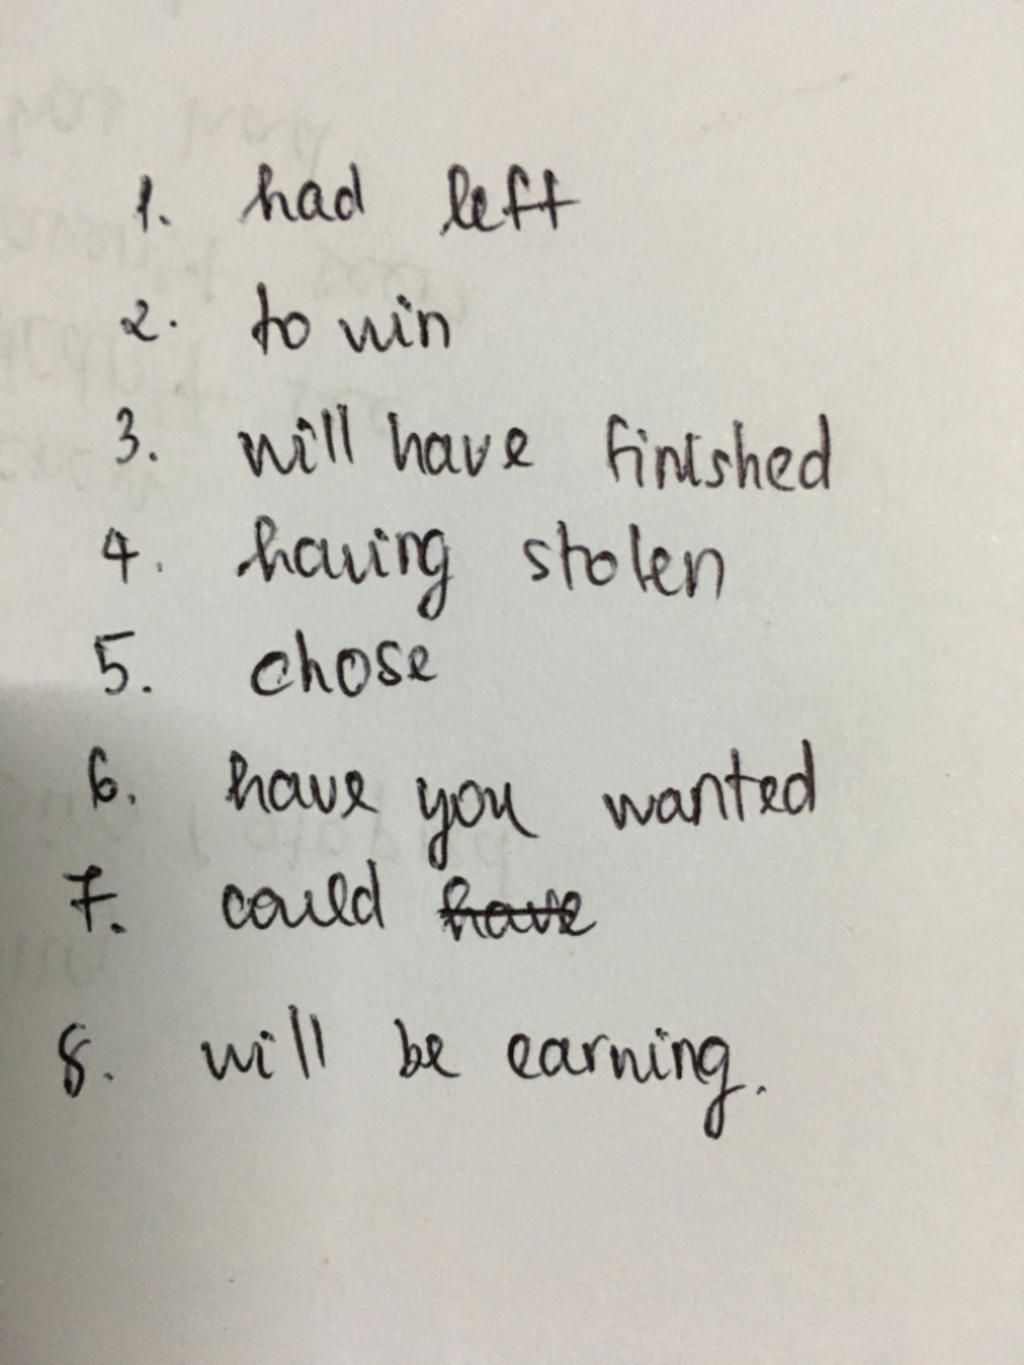 1. had left
2. to win
3. will have finished
4. having stolen
5. chose
6. have you wanted
7. could have
8. will be earning.